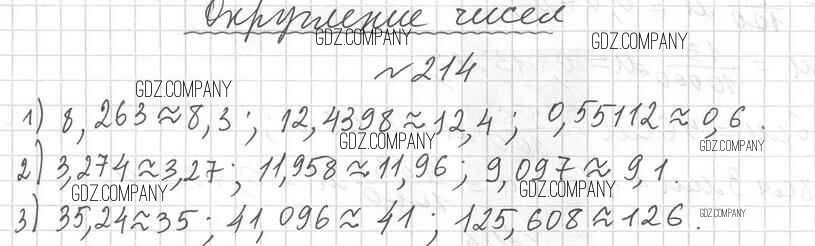 Округление чисел
GDZ.COMPANY GDZ.COMPANY
~ 214
GDZ.COMPANY
1) 8,263≈8,3; 12,4398≈12,4; 0,55112≈0,6.
GDZ.COMPANY GDZ.COMPANY
2) 3,274≈3,27; 11,958≈11,96; 9,097≈9,1.
GDZ.COMPANY GDZ.COMPANY
3) 35,24≈35; 41,096≈41; 125,608≈126. GDZ.COMPANY